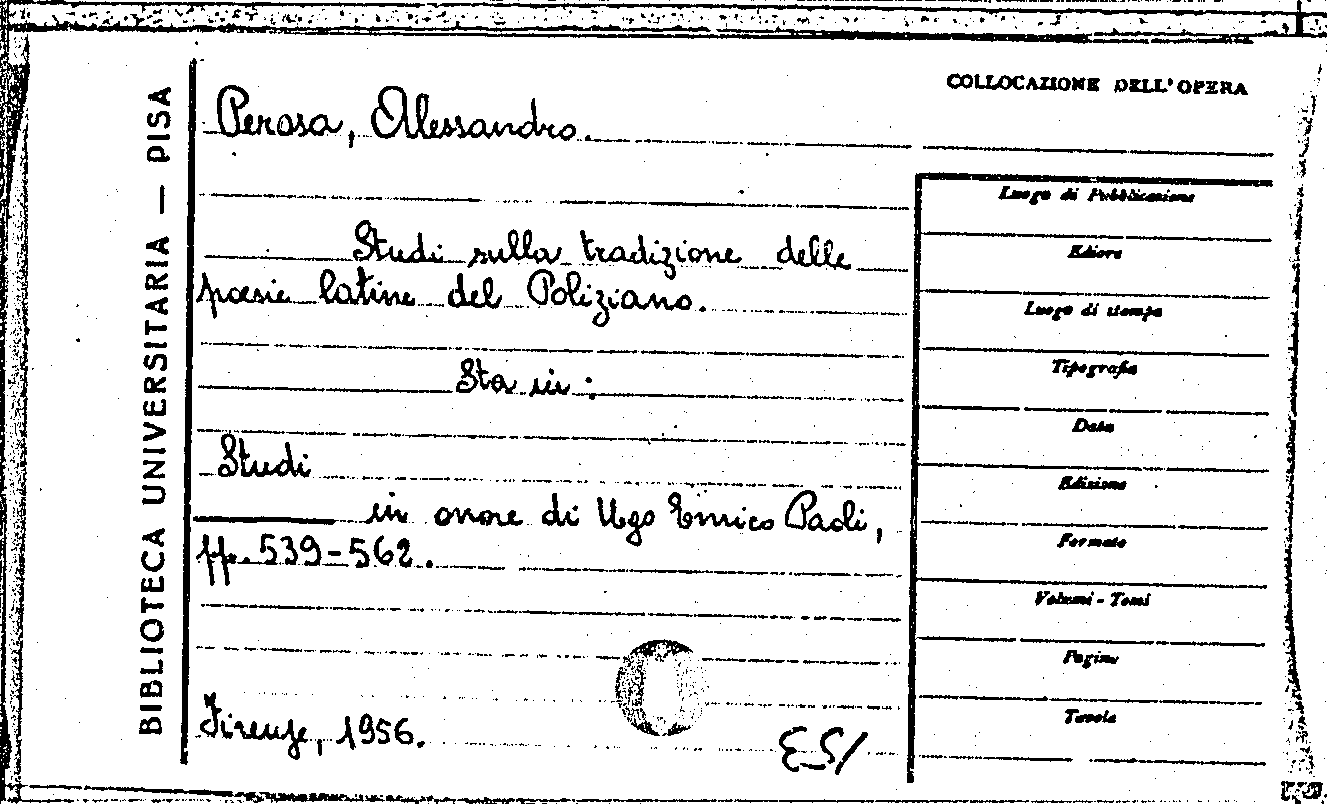 BIBLIOTECA UNIVERSITARIA — PISA
COLLOCAZIONE DELL'OPERA
Perosa, Alessandro.
Studi sulla tradizione delle
poesie latine del Poliziano.
Sta in:
Studi
in onore di Ugo Enrico Paoli,
pp. 539-562.
Firenze, 1956.
ES/
Luogo di Pubblicazione
Editore
Luogo di stampa
Tipografia
Data
Edizione
Formato
Volumi - Tomi
Pagine
Tavole